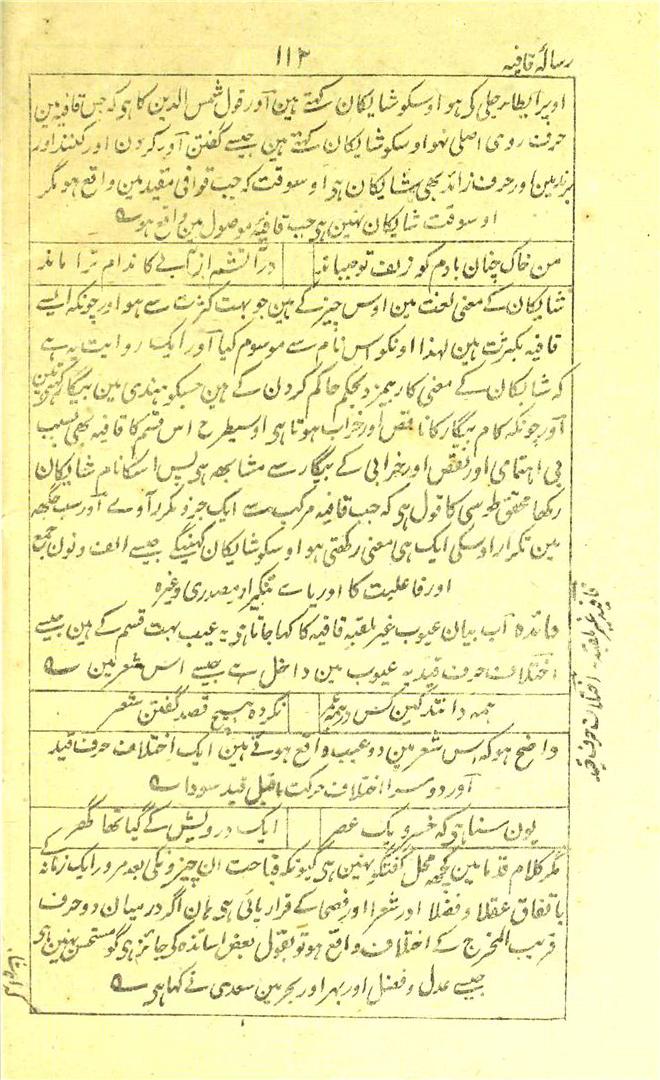 رسالۂ قافیہ
۱۱۳
اوپر ایطاء جلی کی ہو اوسکو شایکان کہتے ہین اور قول شمس الدین کا ہی کہ جس قافیہ مین
حرف روی اصلی نہو اوسکو شایکان کہتے ہین جیسے گفتن اور کردن اور کنند اور
اور حرف زائد بھی شایکان ہی اوسوقت کہ جب قوافی مقید مین واقع ہو مگر
اوسوقت شایکان نہین ہی جب قافیہ موصول مین واقع ہو ے
من خاک چنان بادم کو زلف تو جنباند
در آتشم از آبے کاندام ترا ماند
شایکان کے معنی لغت مین اوس چیز کے ہین جو بہت کثرت سے ہو اور چونکہ ایسے
قافیہ بکثرت ہین لہذا اونکو اس نام سے موسوم کیا اور ایک روایت یہ ہے
کہ شایکان کے معنی کار بیمزد بحکم حاکم کردن کے ہین جسکو ہندی مین بیگار کہتے ہین
اور چونکہ کام بیگار کا ناقص اور خراب ہوتا ہی اوسیطرح اس قسم کا قافیہ بھی بسبب
بی اہتمامی اور نقص اور خرابی کے بیگار سے مشابھہ ہی پس اسکا نام شایکان
رکھا محقق طوسی کا قول ہی کہ جب قافیہ مرکب سے ایک جزو مکرر آوے اور سب جگھہ
مین تکرار اوسکی ایک ہی معنی رکھتی ہو اوسکو شایکان کہینگے جیسے الف و نون جمع
اور فاعلیت کا اور یاے تنکیر از مصدری وغیرہ
فائدہ اب بیان عیوب غیر ملقبہ قافیہ کا کہا جاتا ہی یہ عیب بہت قسم کے ہین جیسے
اختلاف حرف قید یہ عیوب مین داخل ہے جیسے اس شعر مین ے
ہمہ دانند کین کس در ہمہ عمر
نکردہ ہیچ قصد گفتن شعر
واضح ہو کہ اس شعر مین دو عیب واقع ہوئے ہین ایک اختلاف حرف قید
اور دوسرا اختلاف حرکت ماقبل قید سودا ے
یون سنا ہی کہ خسرو یک عصر
ایک درویش کے گیا تھا گھر
مگر کلام قدما مین کچھ محل گفتگو نہین ہی کیونکہ قباحت ان چیزونکی بعد مرور ایک زمانہ کے
باتفاق عقلا و فضلا اور شعرا اور فصحا کے قرار پائی ہی ہان اگر درمیان دو حرف
قریب المخرج کے اختلاف واقع ہو تو بقول بعض اساتذہ کی جائز ہی گو مستحسن نہین ہی
جیسے عدل و فضل اور بہر اور بحر مین سعدی نے کہا ہی ے
قافیہ غیر ملقبہ اختلاف حرف قید